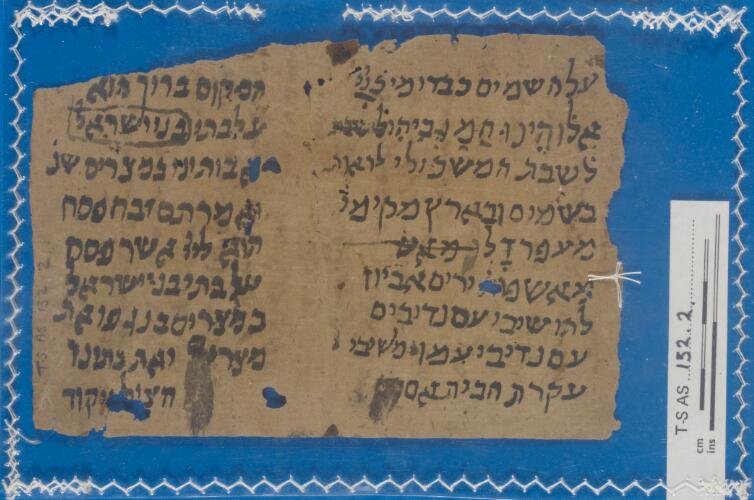 על השמים כבדו מי כיי
אלוהינו המגביהי
לשבת המשפילי לראות
בשמים ובארץ מקימי
מעפר דל מאש
מאשפ ירים אביון
להושיבי עם נדיבים
עם נדיבי עמו משיבי
עקרת הבית אם
המקום ברוך הוא
על בתי בני ישראל
אבותינו במצרים שנ
ואמרתם זבח פסח
הוא ליי אשר פסח
על בתי בני ישראל
במצרים בנגפו את
מצרים ואת בתנו
הציל ויקוד
T-S AS 152.2
T-S AS 152.2
cm
ins